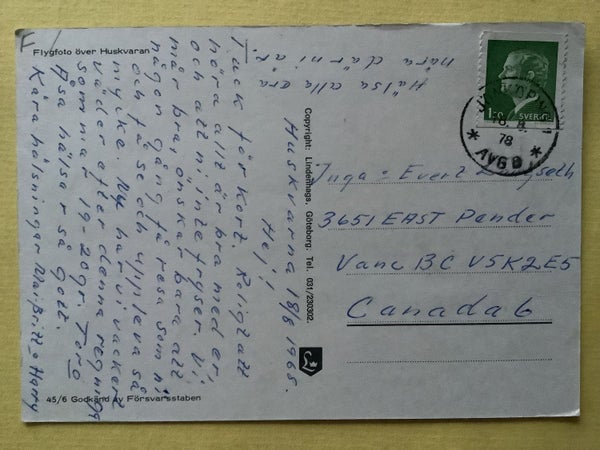 Flygfoto över Huskvaran
Huskvarna 18/8 1965.
Hej!
Tack för kort. Roligt att
höra allt är bra med er,
och att ni inte fryser. Vi
mår bra, önskar bara att
någon gång få resa som ni
och få se och uppleva så
mycke. Nu har vi vackert
väder efter denna regniga
sommar 19-20 gr. Tord
Åsa hälsar så gott.
Kära hälsningar Maj-Britt o Harry
Hälsa alla era
nära där ni är.
45/6 Godkänd av Försvarsstaben
Copyright: Lindenhags. Göteborg. Tel. 031/230302.
SVERIGE
78
AVG
Inga o Evert
3651 EAST Pender
Vanc BC V5K2E5
Canada 6